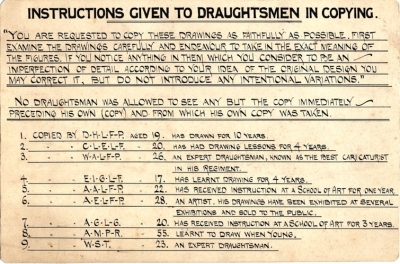 INSTRUCTIONS GIVEN TO DRAUGHTSMEN IN COPYING.
"YOU ARE REQUESTED TO COPY THESE DRAWINGS AS FAITHFULLY AS POSSIBLE, FIRST
EXAMINE THE DRAWINGS CAREFULLY AND ENDEAVOUR TO TAKE IN THE EXACT MEANING OF
THE FIGURES, IF YOU NOTICE ANYTHING IN THEM WHICH YOU CONSIDER TO BE AN
IMPERFECTION OF DETAIL ACCORDING TO YOUR IDEA OF THE ORIGINAL DESIGN YOU
MAY CORRECT IT, BUT DO NOT INTRODUCE ANY INTENTIONAL VARIATIONS."
NO DRAUGHTSMAN WAS ALLOWED TO SEE ANY BUT THE COPY IMMEDIATELY
PRECEDING HIS OWN (COPY) AND FROM WHICH HIS OWN COPY WAS TAKEN.
1. COPIED BY D-H-L-F-P. AGED 19. HAS DRAWN FOR 10 YEARS.
2. " " C-L-E-L-F. " 20. HAS HAD DRAWING LESSONS FOR 4 YEARS.
3. " " W-A-L-F-P. " 26. AN EXPERT DRAUGHTSMAN, KNOWN AS THE BEST CARICATURIST
IN HIS REGIMENT.
4. " " E-I-G-L-F. " 17. HAS LEARNT DRAWING FOR 4 YEARS.
5. " " A-A-L-F-P. " 22. HAS RECEIVED INSTRUCTION AT A SCHOOL OF ART FOR ONE YEAR.
6. " " A-E-L-F-P. " 28. AN ARTIST, HIS DRAWINGS HAVE BEEN EXHIBITED AT SEVERAL
EXHIBITIONS AND SOLD TO THE PUBLIC.
7. " " A-G-L-G. " 20. HAS RECEIVED INSTRUCTION AT A SCHOOL OF ART FOR 3 YEARS.
8. " " A-M-P-R. " 55. LEARNT TO DRAW WHEN YOUNG.
9. " " W-S-T. " 23. AN EXPERT DRAUGHTSMAN.